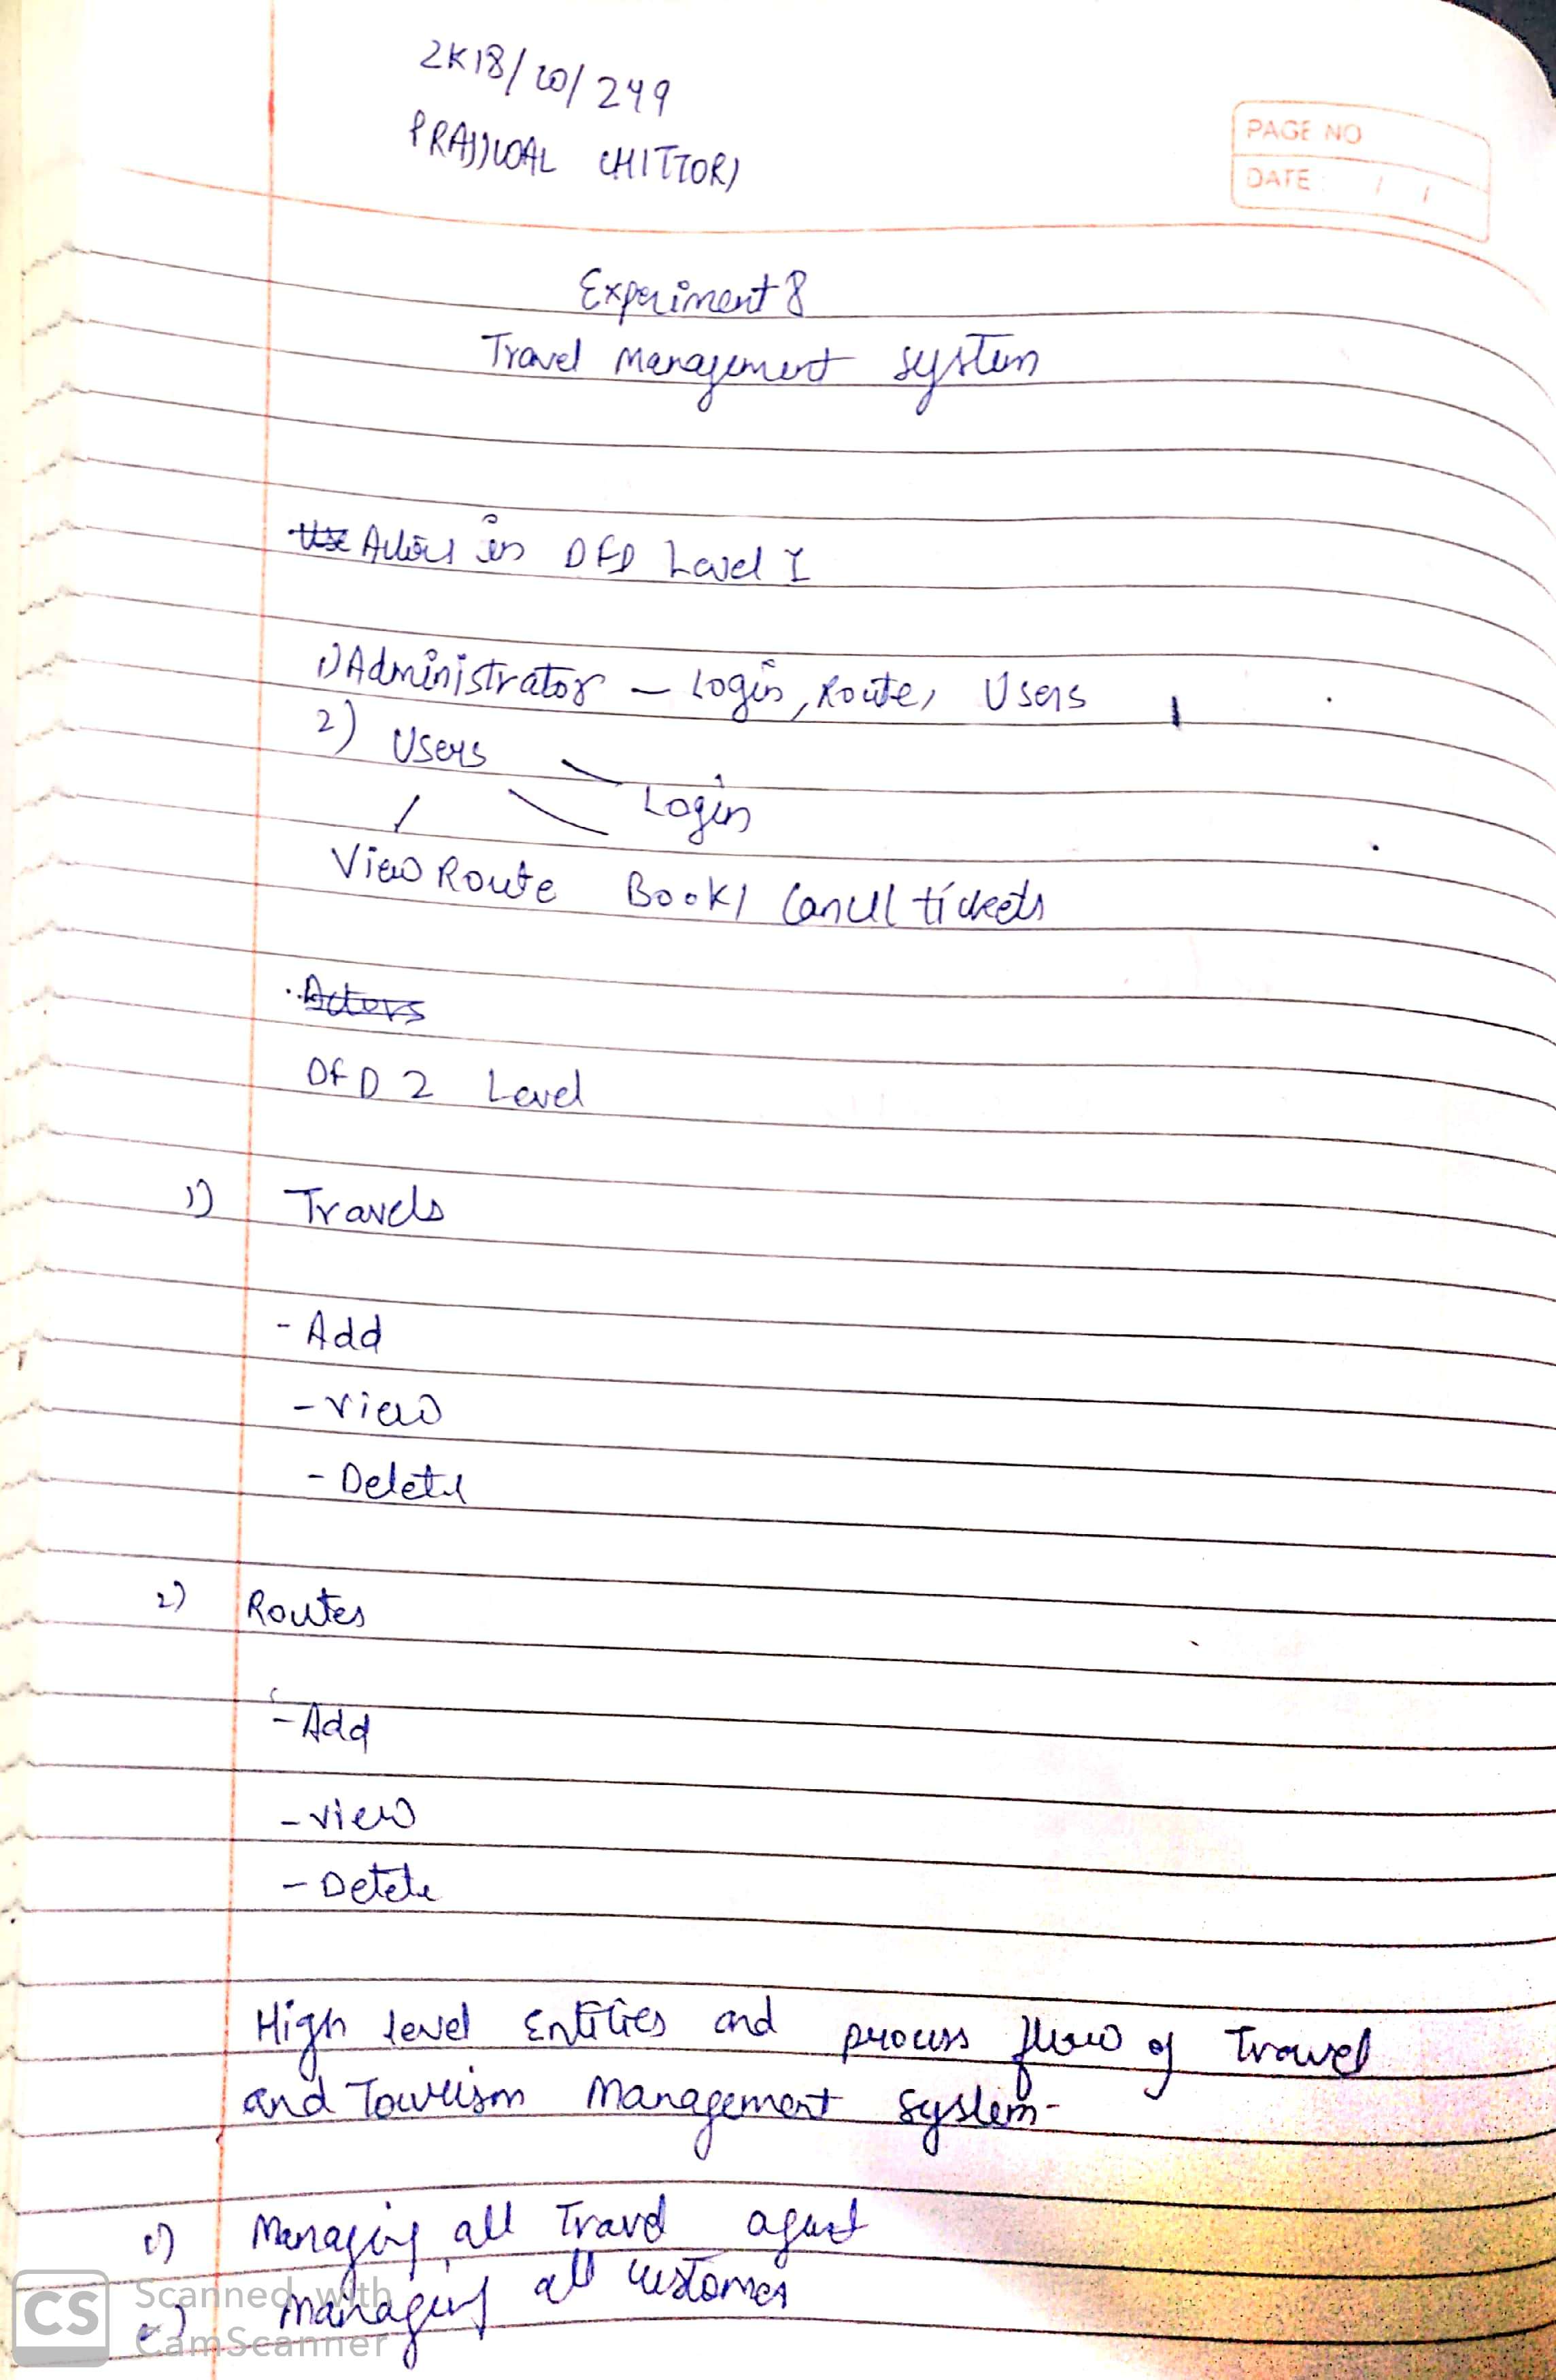 2K18/CO/249
PRAJJWAL CHITTORI
PAGE NO
DATE : / /
Experiment 8
Travel Management system
Use Actors in DFD Level I
1) Administrator - Login, Route, Users
2) Users
Login
View Route Book/ Cancel tickets
Actors
DFD 2 Level
1) Travels
- Add
- View
- Delete
2) Routes
- Add
- view
- Delete
High level Entities and process flow of Travel
and Tourism Management System-
1) Managing all Travel agent
2) Managing all customer
CS Scanned with
CamScanner